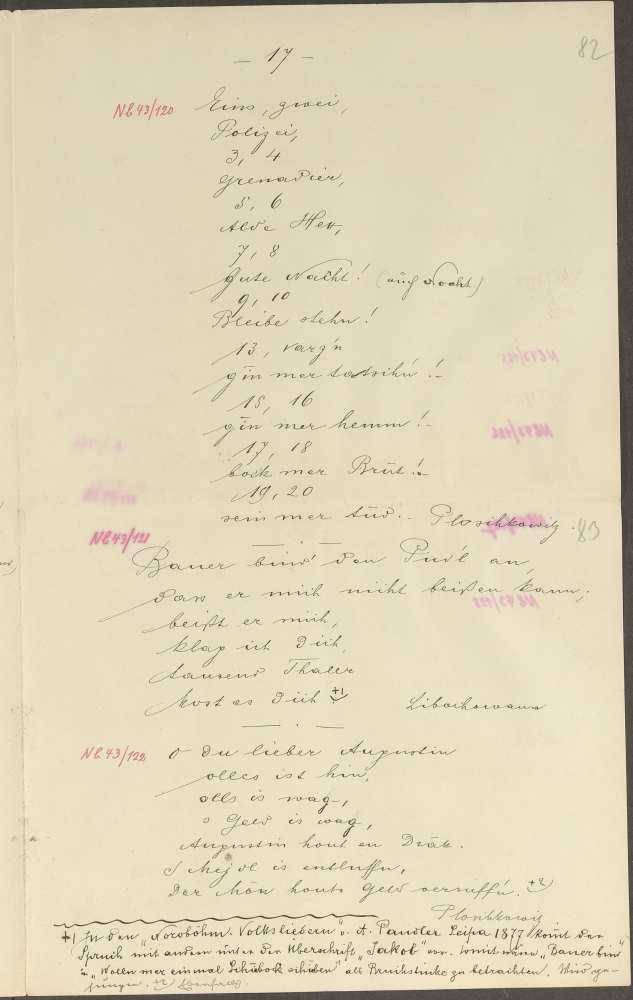 - 17 -
82
Nb 43/120
Eins, zwei,
Polizei,
3, 4
Grenadier,
5, 6
Alde Hex,
7, 8
Gute Nacht! (auch Nocht)
9, 10
Bleibe stehn!
13, varz'n
gin mer
15, 16
gin mer hemm!
17, 18
bock mer Brut!
19, 20
sein mer tud. Ploschkowitz.
83
Nb 43/121
Bauer bind den Pud'l an,
dass er mich nicht beißen kann;
beißt er mich,
klag ich dich,
tausend Thaler
kost es dich +1)
Libochowann
Nb 43/122
O du lieber Augustin
olles ist hin,
olls is wag,
's Geld is wag,
Augustin hout en Drak.
's Mejdl is entluffn,
Der Mon houts Geld versuffn. +2)
Ploschkowitz
+1 In den „Nordböhm. Volksliedern" v. A. Paudler Leipa 1877 komt der
Spruch mit andern unter der Überschrift „Jakob" vor. somit wäre „Bauer bind"
u. „Wollen mer einmal Schubock schieben" als Bruchstücke zu betrachten. Wird ge-
sungen. +2) Ebenfalls.